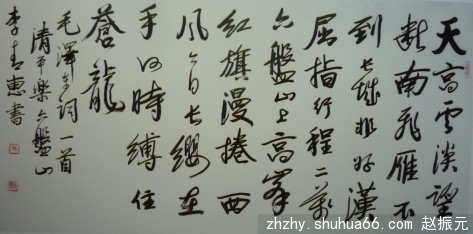 天高云淡望
断南飞雁不
到长城非好汉
屈指行程二万
六盘山上高峰
红旗漫捲西
风今日长缨在
手何时缚住
苍龙
毛泽东词一首
清平乐六盘山
李青惠书
zhzhy.shuhua66.com 赵振元